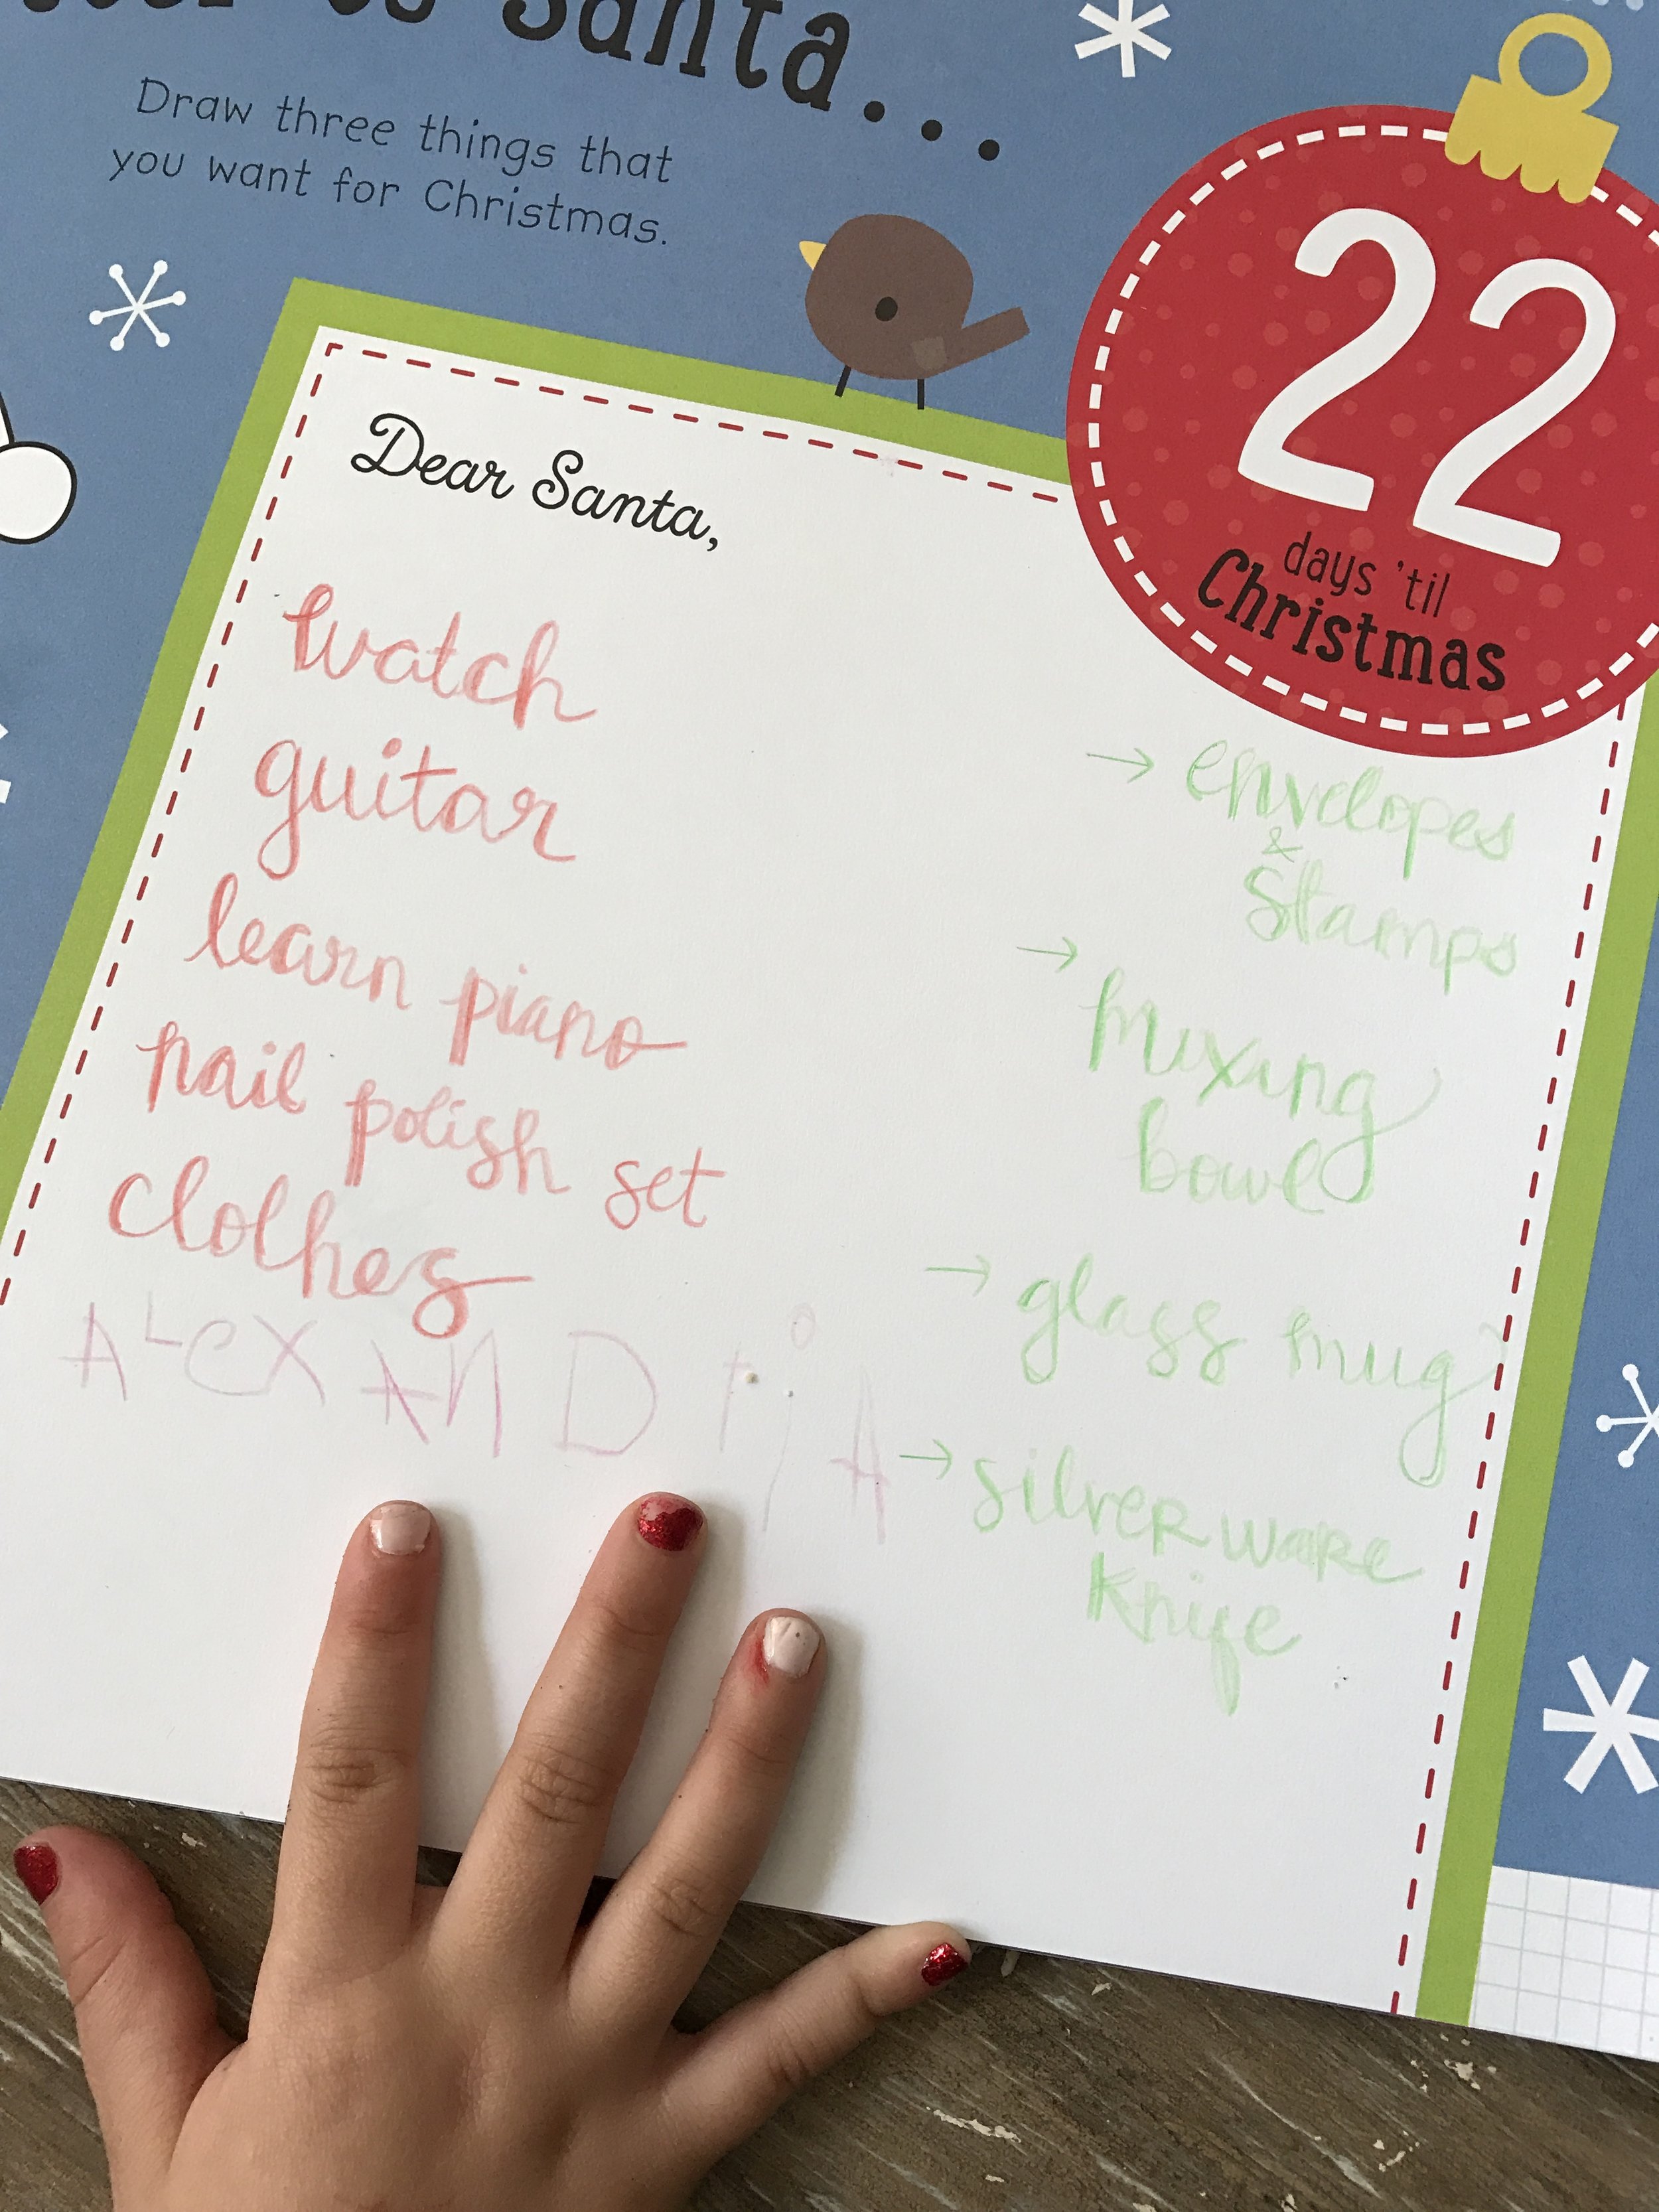 Santa...
Draw three things that
you want for Christmas.
22
days 'til
Christmas
Dear Santa,
watch
guitar
learn piano
nail polish set
clothes
ALexANDriA
→ envelopes
&
stamps
→ mixing
bowl
→ glass mug
→ silverware
knife